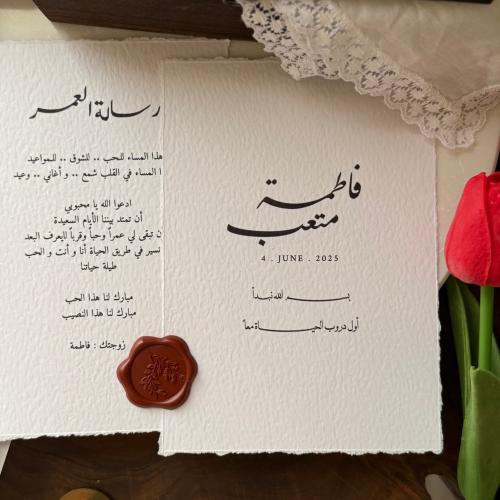 رسالة العمر
هذا المساء للحب .. للشوق .. للمواعيد
المساء في القلب شمع .. و أغاني .. وعيد
ادعوا الله يا محبوبي
أن تمتد بيننا الأيام السعيدة
ن تبقى لي عمراً وحباً وقرباً لايعرف البعد
نسير في طريق الحياة أنا و أنت و الحب
طيلة حياتنا
مبارك لنا هذا الحب
مبارك لنا هذا النصيب
زوجتك : فاطمة
فاطمة
متعب
4 . JUNE . 2025
بسم الله نبدأ
أول دروب الحياة معاً